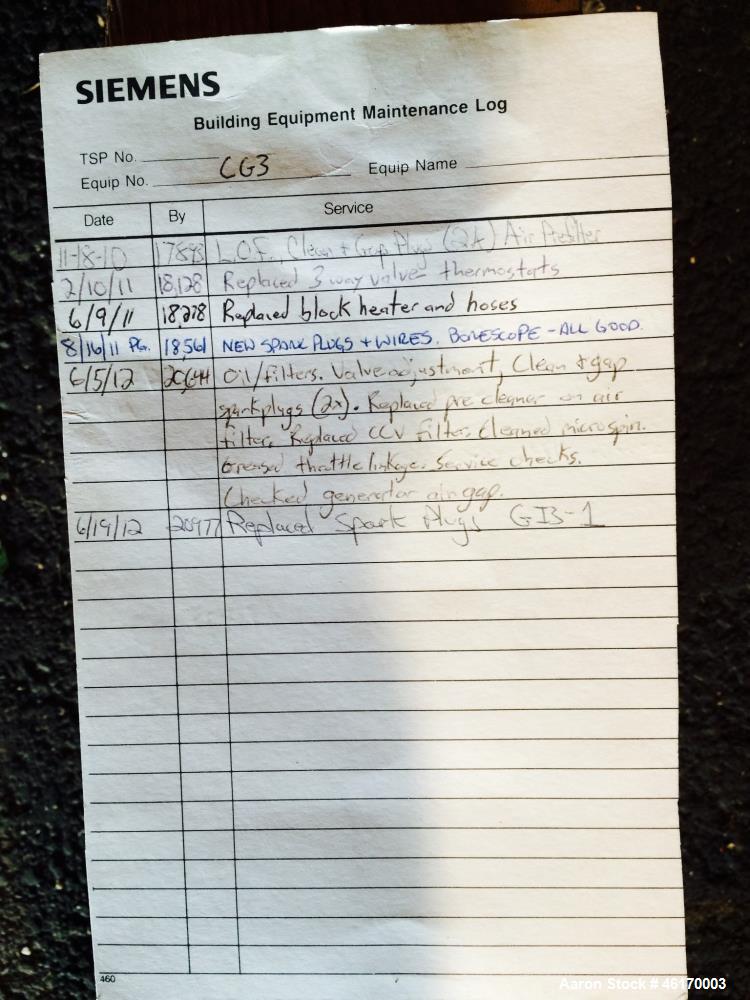 SIEMENS
Building Equipment Maintenance Log
TSP No.
Equip No. CG3 Equip Name
Date By Service
11-18-10 17893 L.O.F., Clean + Gap Plugs (2x) Air Prefilter
2/10/11 18,128 Replaced 3 way valve thermostats
6/9/11 18,278 Replaced block heater and hoses
8/16/11 PG. 18,561 NEW SPARK PLUGS + WIRES. BORESCOPE - ALL GOOD.
6/5/12 Oil/filters. Valve adjustment, Clean + gap
sparkplugs (2x). Replaced pre cleaner on air
filter, Replaced CCV filter, Cleaned microspin.
Greased throttle linkage. Service checks.
Checked generator air gap.
6/19/12 20977 Replaced Spark Plugs GI3-1
460
Aaron Stock # 46170003